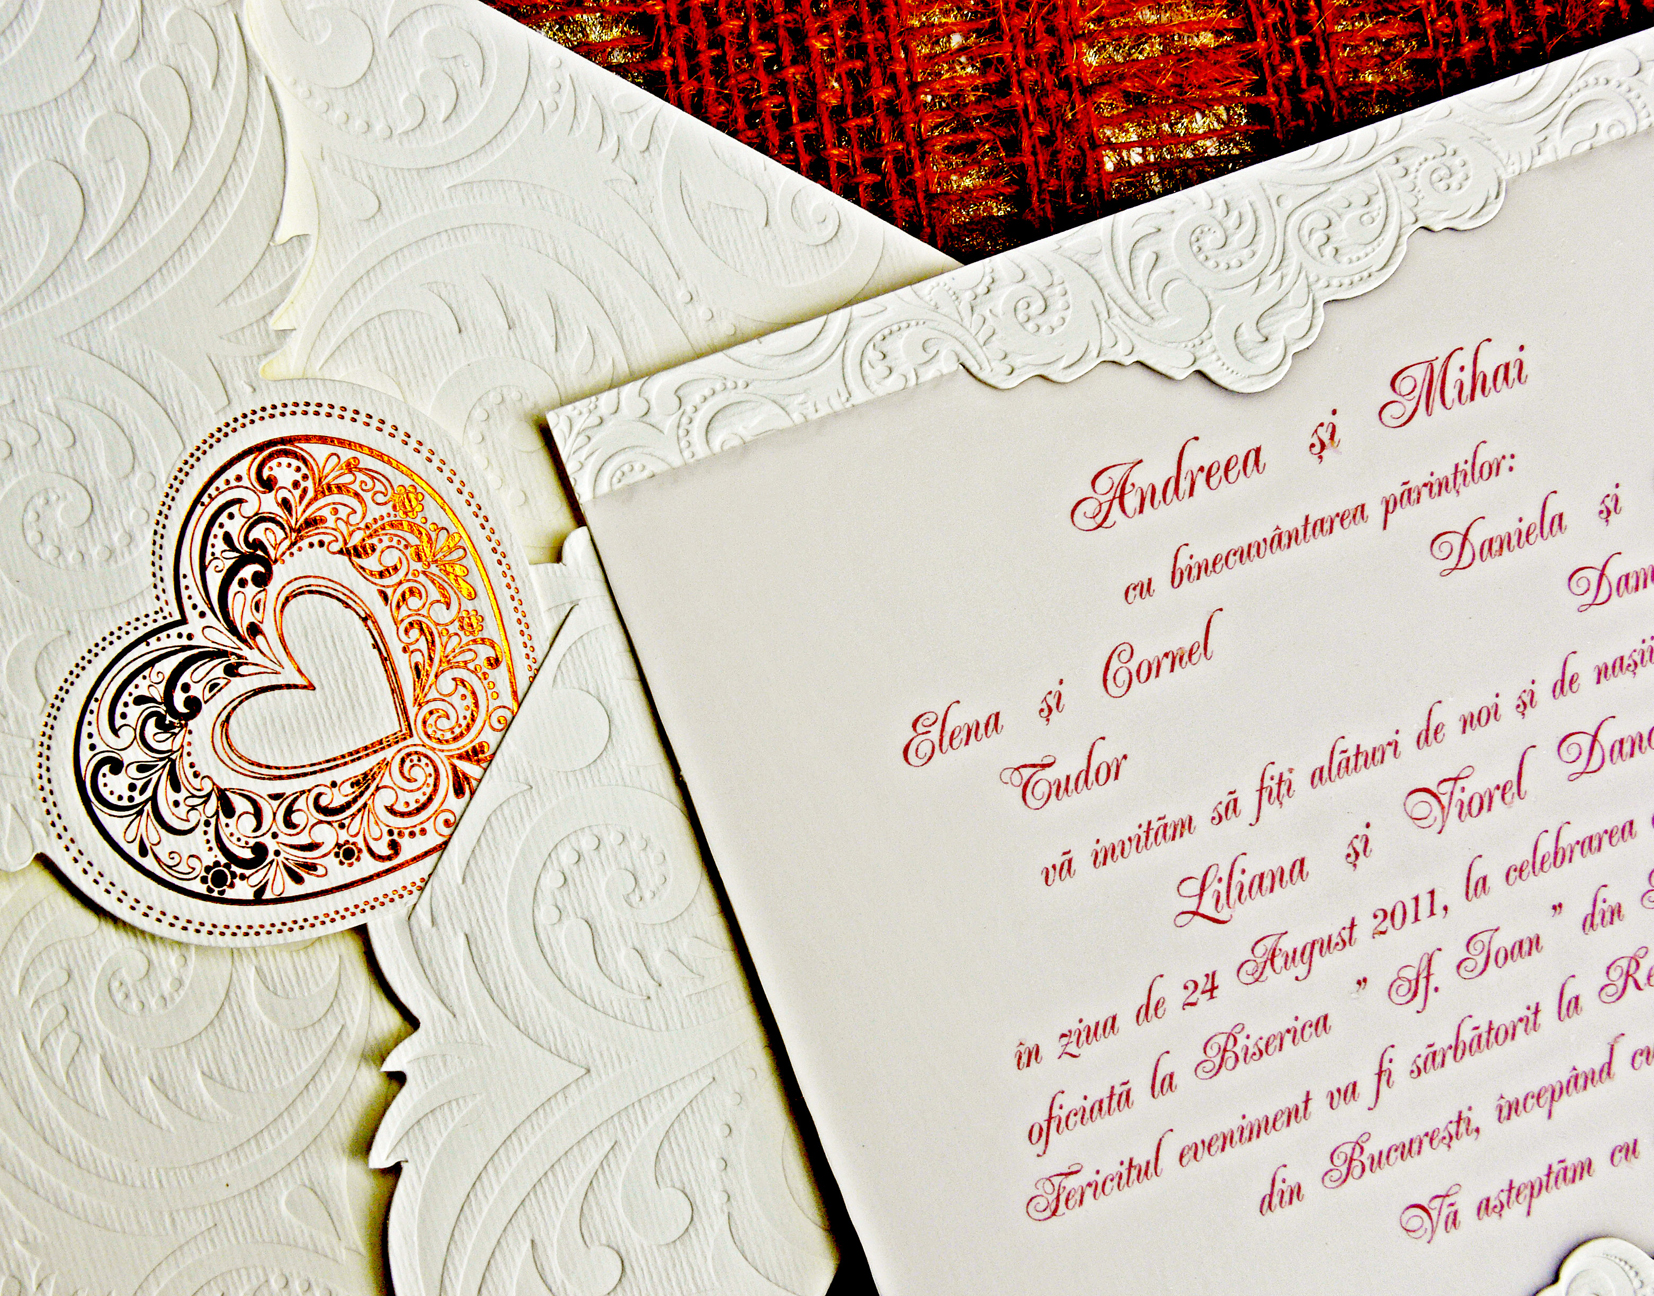 Andreea și Mihai
cu binecuvântarea părinților:
Daniela și
Dam
Elena și Cornel
Tudor
vă invităm să fiți alături de noi și de nașii
Liliana și Viorel Danc
în ziua de 24 August 2011, la celebrarea
oficiată la Biserica " Sf. Ioan " din
Fericitul eveniment va fi sărbătorit la Re
din București, începând cu
Vă așteptăm cu